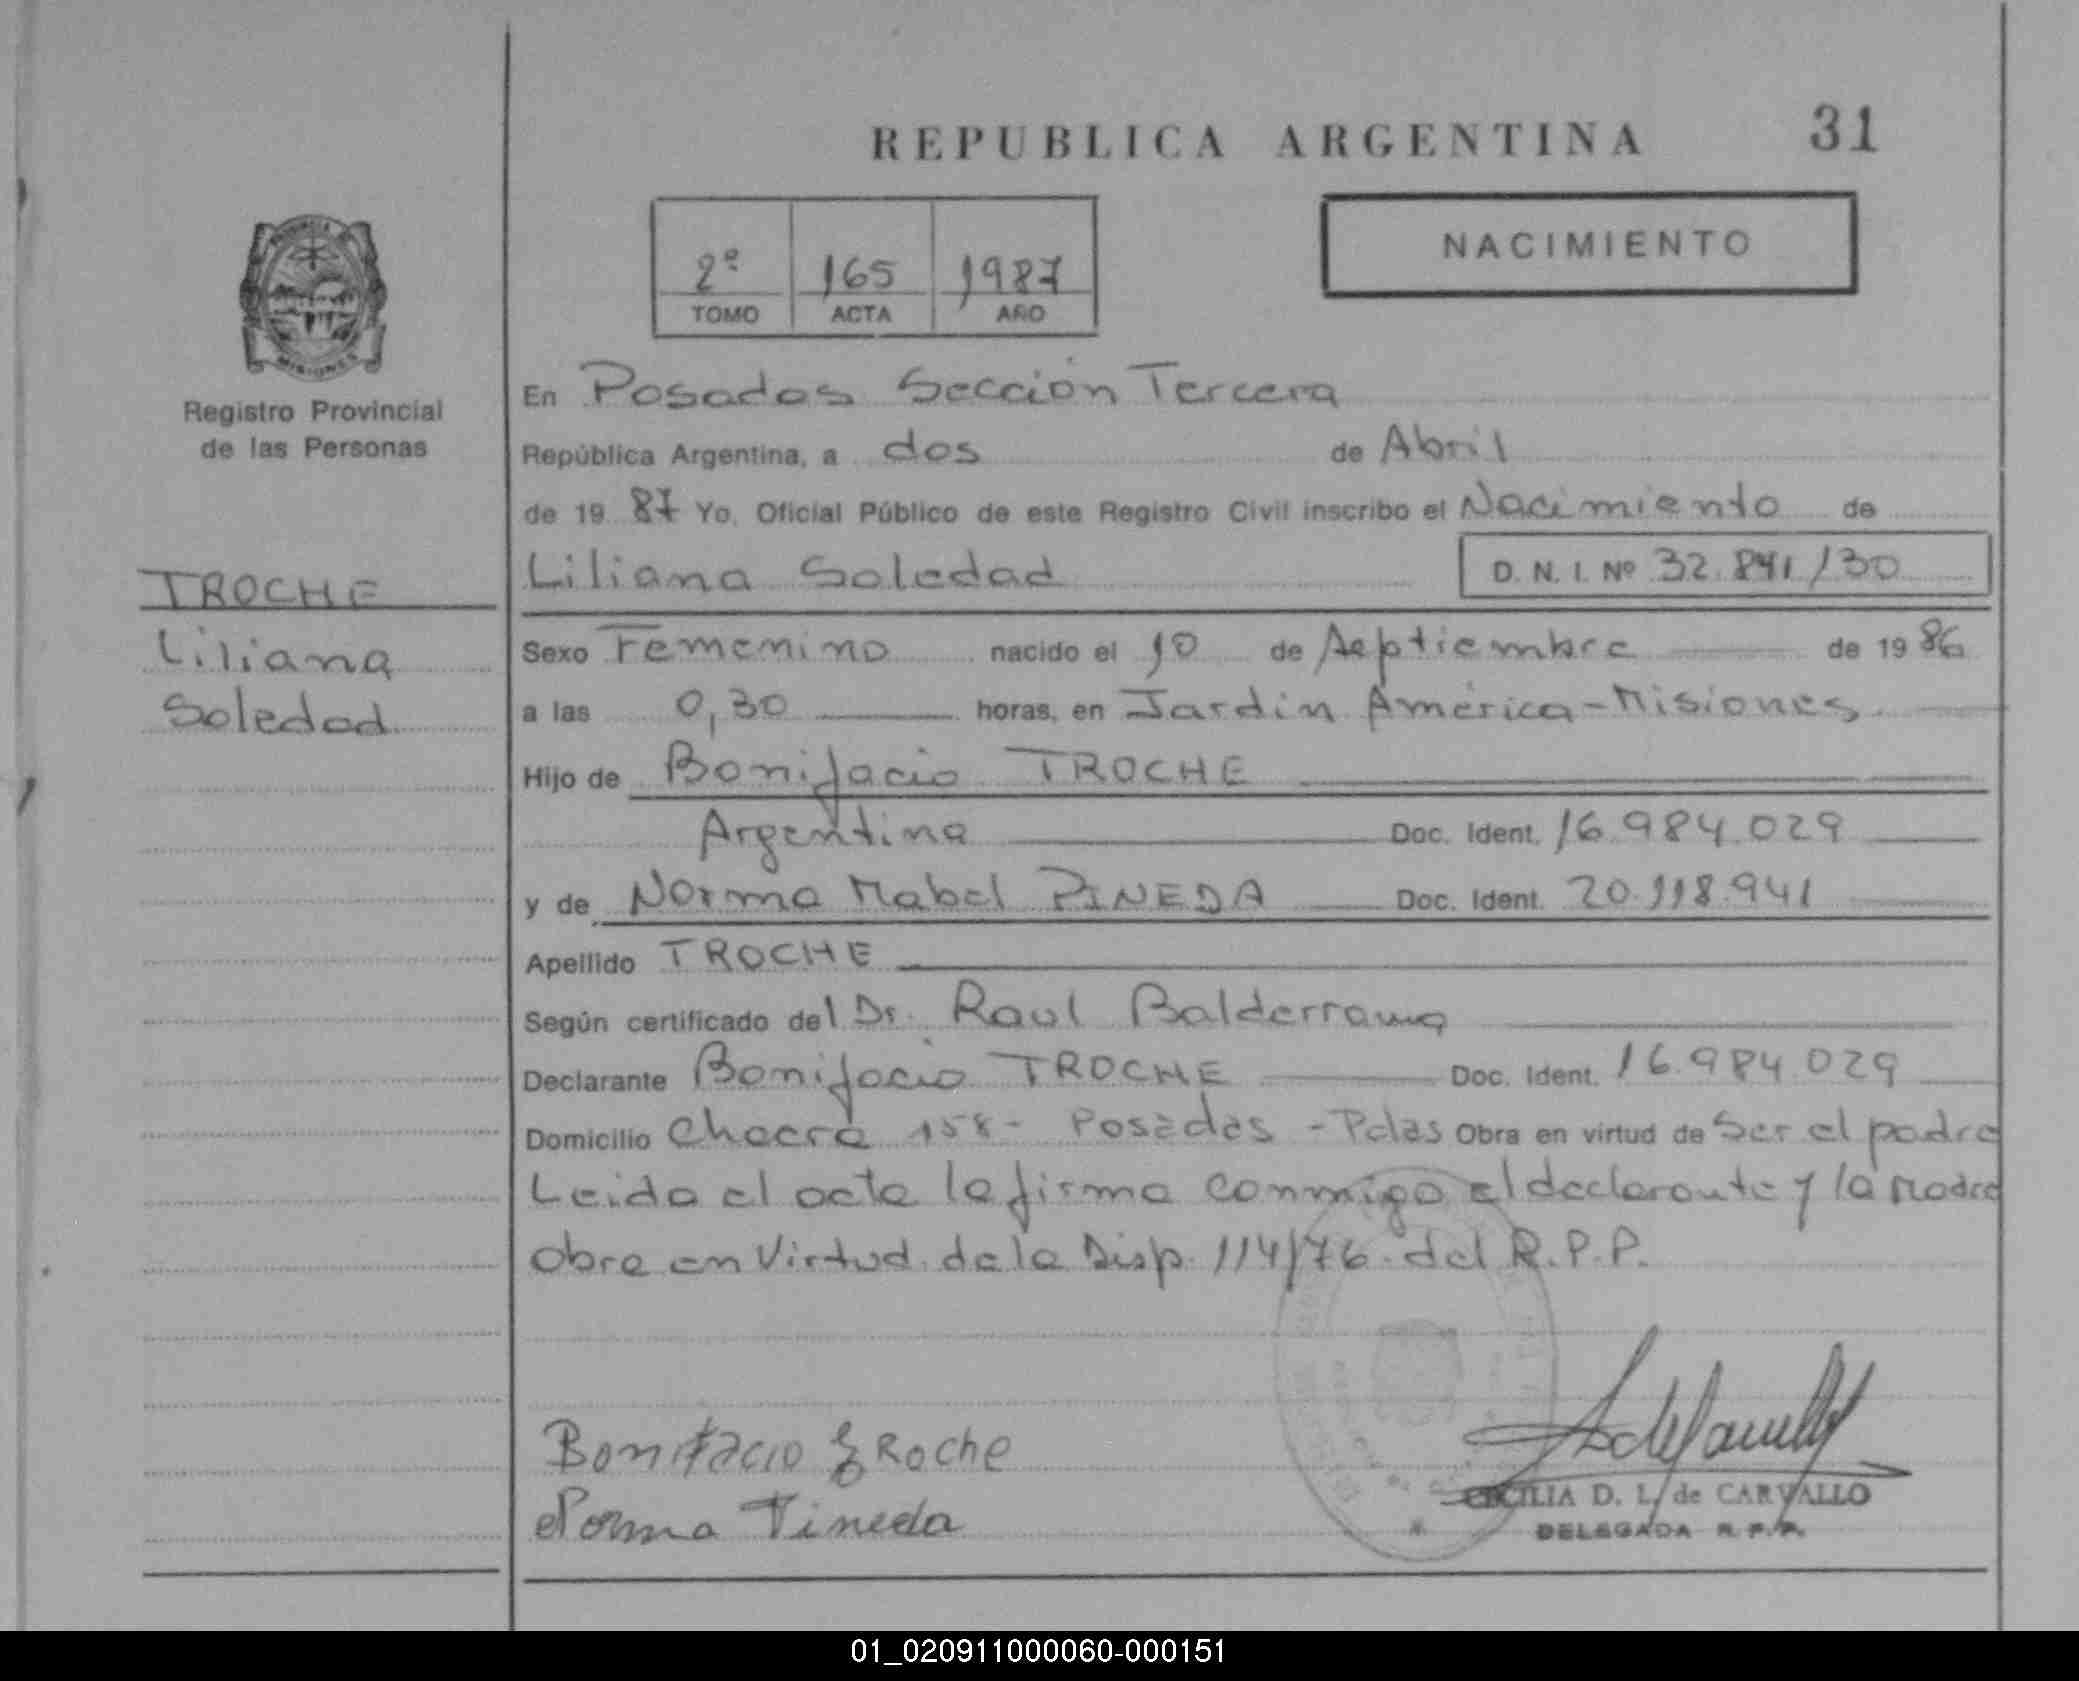 REPUBLICA ARGENTINA 31
2º 165 1987
TOMO ACTA AÑO
NACIMIENTO
Registro Provincial
de las Personas
TROCHE
Liliana
Soledad
En Posadas Sección Tercera
República Argentina, a dos de Abril
de 19 87 Yo, Oficial Público de este Registro Civil inscribo el Nacimiento de
Liliana Soledad D. N. I. Nº 32.841/30
Sexo Femenino nacido el 10 de Septiembre de 19 86
a las 0,30 horas, en Jardín América - Misiones
Hijo de Bonifacio TROCHE
Argentina Doc. Ident. 16.984.029
y de Norma Mabel PINEDA Doc. Ident. 20.118.941
Apellido TROCHE
Según certificado del Dr. Raul Balderrama
Declarante Bonifacio TROCHE Doc. Ident. 16.984.029
Domicilio Chacra 158 - Posadas - Pdas Obra en virtud de Ser el padre
Leida el acta la firma conmigo el declarante y la Madre
obra en Virtud de la Disp. 114/76 del R.P.P.
Bonifacio TRoche
Norma Pineda
CECILIA D. L. de CARVALLO
DELEGADA R.P.P.
01_020911000060-000151